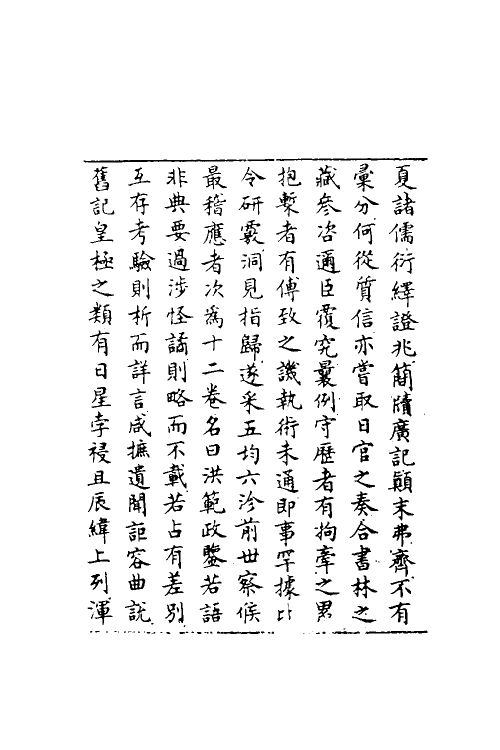 夏諸儒衍繹證兆簡隋廣記顛末弗齊不有
彚分何從質信亦嘗取日官之奏合書林之
藏參咨邇臣覆究曩例守厯者有拘牽之累
抱槧者有傅致之譏執術未通即事罕據比
令研覈洞見指歸遂采五均六沴前世察候
最稽應者次為十二卷名曰洪範政鑒若語
非典要過涉怪譎則略而不載若占有差别
互存考驗則析而詳言咸摭遺聞詎容曲説
舊記皇極之類有日星孛祲且辰緯上列渾